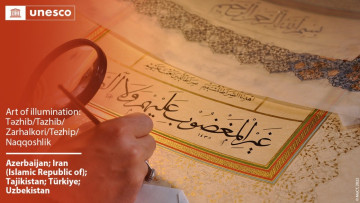 unesco
Art of illumination:
Təzhib/Tazhib/
Zarhalkori/Tezhip/
Naqqoshlik
Azerbaijan; Iran
(Islamic Republic of);
Tajikistan; Türkiye;
Uzbekistan
غير المغضوب عليهم ولا